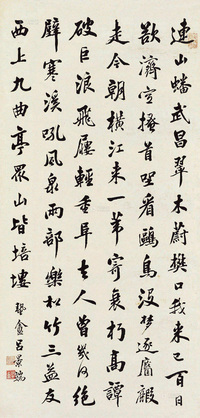 連山蟠武昌翠木蔚樊口我來已百日
欲濟空搔首坐看鷗鳥沒夢逐麏麚
走今朝橫江來一葦寄衰朽高譚
破巨浪飛屨輕重阜去人曾幾何絕
壁寒溪吼風泉兩部樂松竹三益友
西上九曲亭眾山皆培塿 蟄盦呂景端